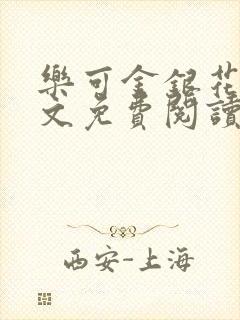 樂可金銀花
文免費閱讀
西安-上海